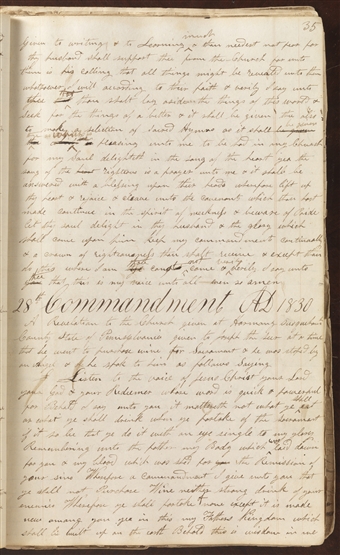 35
given to writing & to Learning much & thou needest not fear for
thy husband shall support thee from the Church for unto
them is his calling that all things might be revealed unto them
whatsoever I will according to their faith & verily I say unto
thee that thou shalt lay aside the things of this world &
seek for the things of a better & it shall be given thee also
to make a selection of Sacred Hymns as it shall be given
thee which is pleasing unto me to be had in my Church
for my Soul delighteth in the song of the heart yea the
song of the righteous is a prayer unto me & it shall be
answered with a blessing upon their heads wherefore lift up
thy heart & rejoice & cleave unto the covenant which thou hast
made continue in the spirit of meekness & beware of Pride
let thy soul delight in thy husband & the glory which
shall come upon him keep my commandments continually
& a crown of righteousness thou shalt receive & except thou
do this where I am ye cannot come & verily I say unto
you that this is my voice unto all men so amen
28th Commandment AD 1830
A Revelation to the Church given at Harmony Susquehanna
County State of Pennsylvania given to Joseph the Seer at a time
that he went to purchase wine for Sacrament & he was stoped by
an Angel & he spoke to him as follows Saying
Listen to the voice of Jesus Christ your Lord
your God & your Redeemer whose word is quick & powerful
for Behold I say unto you it mattereth not what ye shall eat
or what ye shall drink when ye partake of the Sacrament
if it so be that ye do it with an eye single to my glory
Remembering unto the father my Body which was laid down
for you & my blood which was shed for the Remission of
your sins Wherefore a Commandment I give unto you that
ye shall not Purchase Wine neither strong drink of your
enemies Wherefore ye shall partake none except it is made
new among you yea in this my Fathers Kingdom which
shall be built up on the earth Behold this is wisdom in me